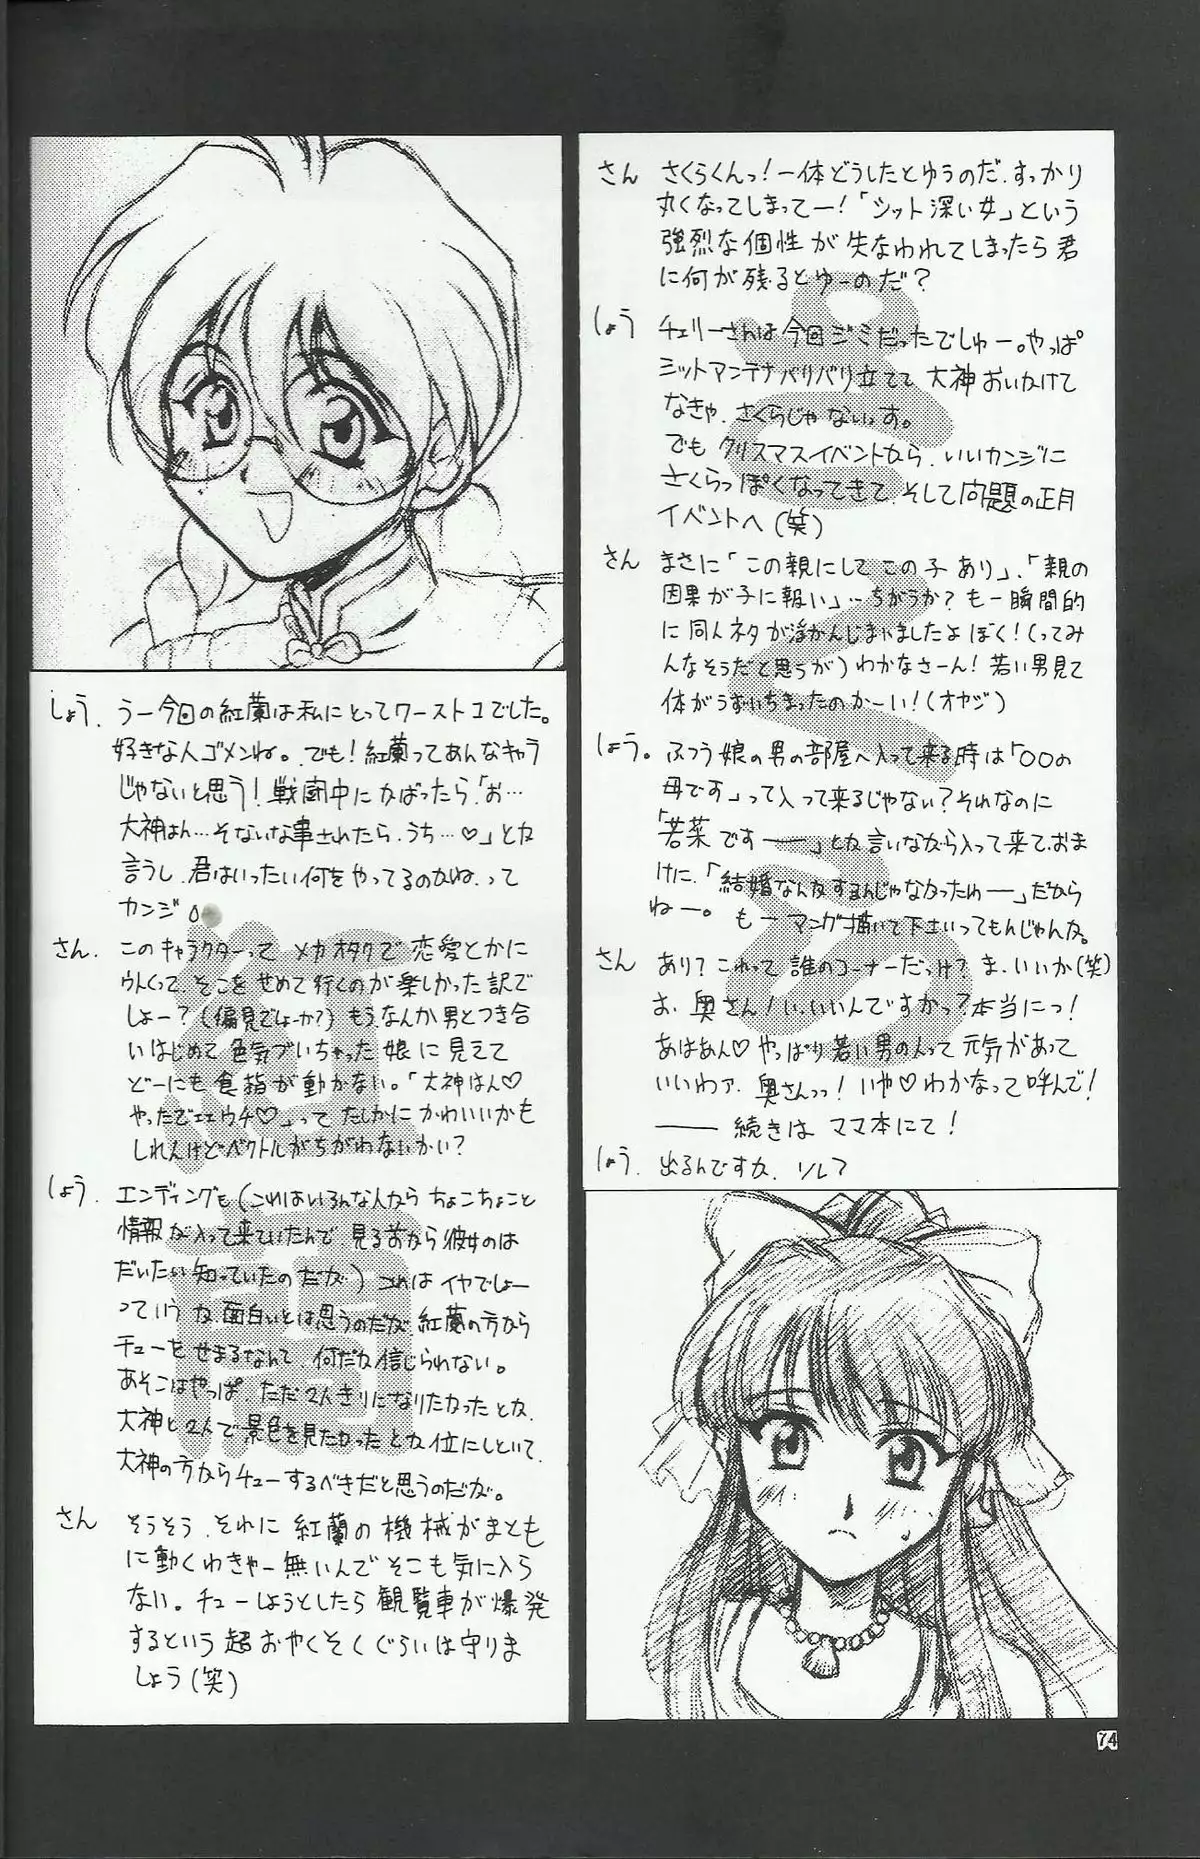 さん さくらくんっ！一体どうしたとゆうのだ、すっかり
丸くなってしまってー！「シット深い女」という
強烈な個性が失なわれてしまったら君
に何が残るとゆーのだ？
しょう チェリーさんは今回ジミだったでしゅー。やっぱ
シットアンテナバリバリ立てて大神おいかけて
なきゃ、さくらじゃないっす。
でもクリスマスイベントから、いいカンジに
さくらっぽくなってきて、そして問題の正月
イベントへ（笑）
さん まさに「この親にしてこの子あり」、「親の
因果が子に報い」…ちがうか？もー瞬間的
に同人ネタが浮かんじまいましたよぼく！（ってみ
んなそうだと思うが）わかなさーん！若い男見て
体がうずいちまったのかーい！（オヤジ）
しょう。ふつう娘の男の部屋へ入って来る時は「〇〇の
母です」って入って来るじゃない？それなのに
「若菜ですーー」とか言いながら入って来て、おま
けに、「結婚なんかするんじゃなかったわー」だから
ねー。もーマンガ描いて下さいってもんじゃんか。
さん あり？これって誰のコーナーだっけ？ま、いいか（笑）
お、奥さん！い、いいんですかっ？本当にっ！
あはあん♡やっぱり若い男の人って元気があって
いいわァ、奥さんっっ！いや♡わかなって呼んで！
――続きはママ本にて！
しょう、出るんですか、ソレ？
しょう、うー今回の紅蘭は私にとってワーストコでした。
好きな人ゴメンね。でも！紅蘭ってあんなキャラ
じゃないと思う！戦闘中にかばったら「お…
大神はん…そないな事されたら、うち…♡」とか
言うし、君はいったい何をやってるのかね、って
カンジ
さん、このキャラクターってメカオタクで恋愛とかに
ウトくって、そこをせめて行くのが楽しかった訳で
しょー？（偏見でしょーか？）もう、なんか男とつき合
いはじめて色気づいちゃった娘に見えて
どーにも食指が動かない。「大神はん♡
やったでエエウチ♡」ってたしかにかわいいかも
しれんけどベクトルがちがわないかい？
しょう、エンディングも（これはいろんな人からちょこちょこと
情報が入って来ていたんで見る前から彼女のは
だいたい知っていたのだが）これはイヤでしょー
っていうか面白いとは思うのだが紅蘭の方から
チューをせまるなんて、何だか信じられない。
あそこはやっぱ、ただ2人きりになりたかったとか、
大神と2人で景色を見たかったとか位にしといて、
大神の方からチューするべきだと思うのだが。
さん そうそう、それに紅蘭の機械がまとも
に動くわきゃー無いんでそこも気に入ら
ない。チューしようとしたら観覧車が爆発
するという超おやくそくぐらいは守りま
しょう（笑）
74